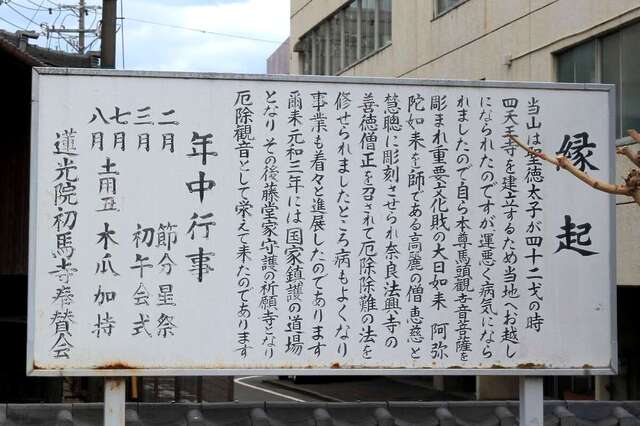 縁起
当山は聖徳太子が四十二才の時
四天王寺を建立するため当地へお越し
になられたのですが運悪く病気になら
れましたので自ら本尊馬頭観世音菩薩を
彫まれ重要文化財の大日如来 阿弥
陀如来を師である高麗の僧 恵慈と
慧聰に彫刻させられ奈良法興寺の
善徳僧正を召されて厄除除難の法を
修せられましたところ病もよくなり
事業も着々と進展したのであります
爾来元和三年には国家鎮護の道場
となり その後藤堂家守護の祈願寺となり
厄除観音として栄えて来たのであります
年中行事
二月 節分星祭
三月 初午会式
七月
八月 土用丑 木瓜加持
蓮光院初馬寺奉賛会